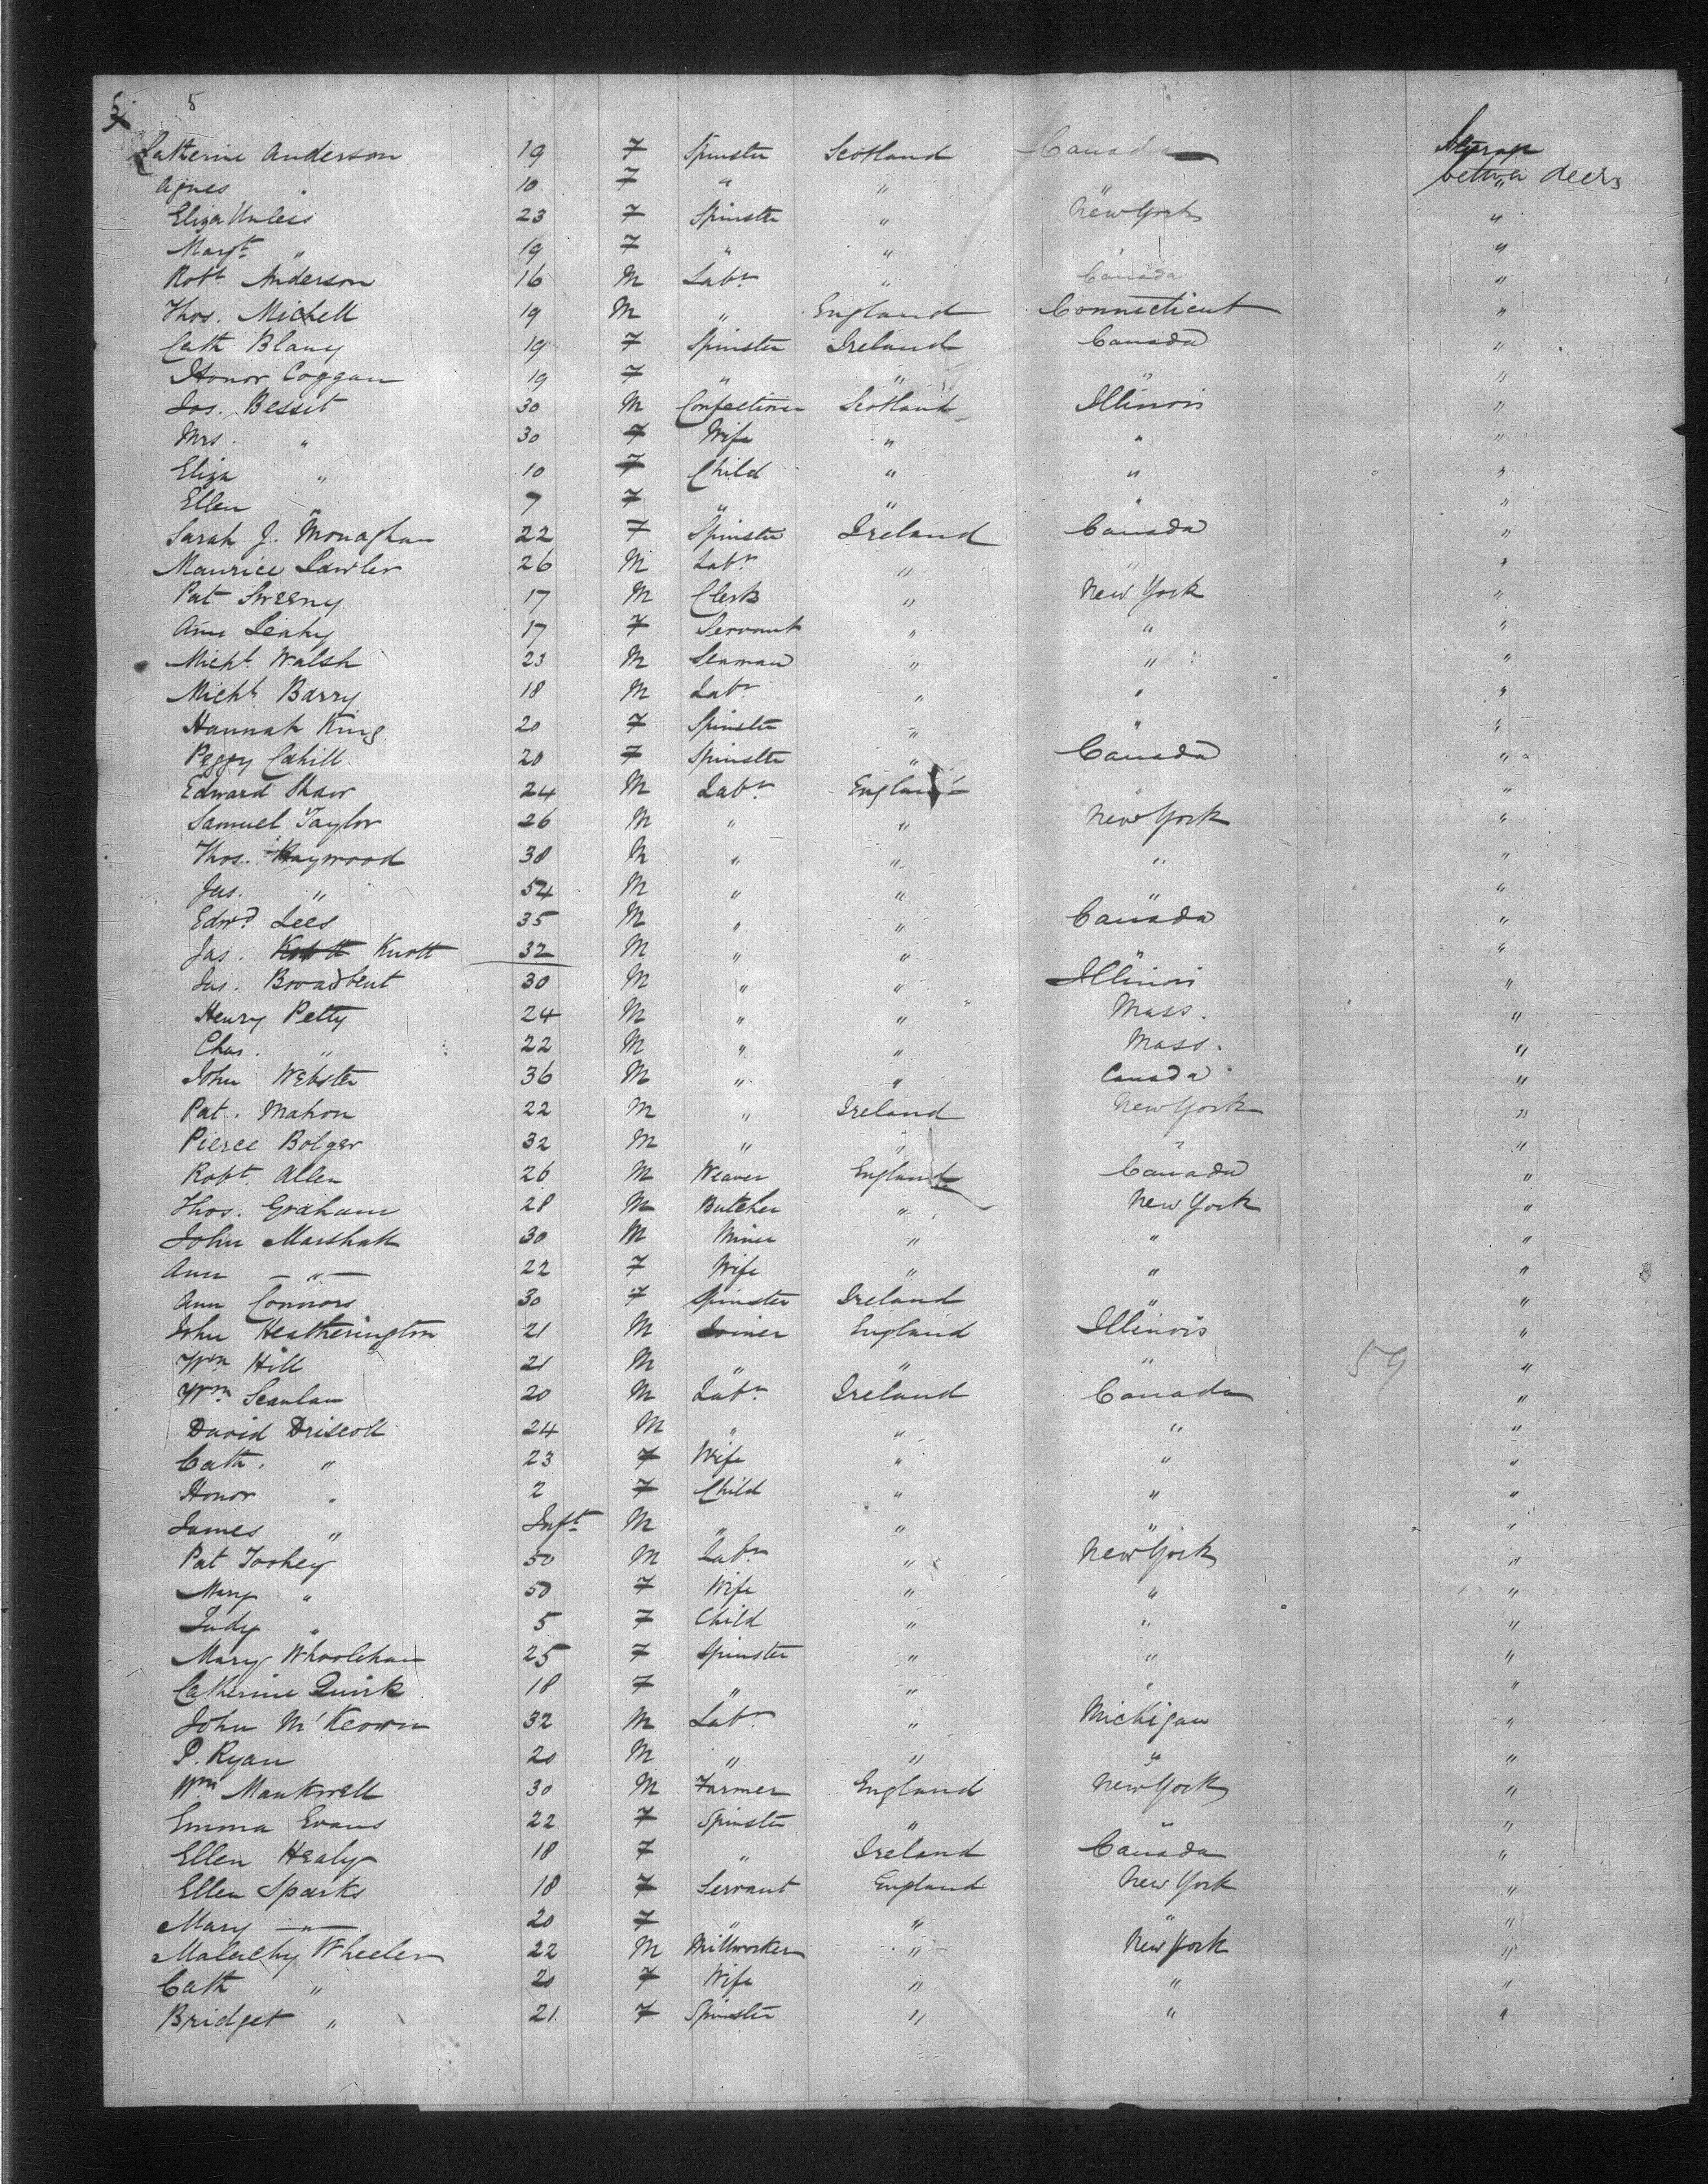 5
Catherine Anderson 19 F Spinster Scotland Canada Steerage
Agnes " 10 F " " " betwn decks
Eliza Unless 23 F Spinster " New York "
Margt " 19 F " " " "
Robt Anderson 16 M Labr " Canada "
Thos. Michell 19 M " England Connecticut "
Cath Blany 19 F Spinster Ireland Canada "
Honor Coggan 19 F " " " "
Jos. Besset 30 M Confectioner Scotland Illinois "
Mrs. " 30 F Wife " " "
Eliza " 10 F Child " " "
Ellen " 7 F " " " "
Sarah J. Monaghan 22 F Spinster Ireland Canada "
Maurice Lawler 26 M Labr " " "
Pat Sweeny 17 M Clerk " New York "
Ann Leahy 17 F Servant " " "
Michl. Walsh 23 M Seaman " " "
Michl. Barry 18 M Labr " " "
Hannah King 20 F Spinster " " "
Peggy Cahill 20 F Spinster " Canada "
Edward Shaw 24 M Labr England " "
Samuel Taylor 26 M " " New York "
Thos. Haywood 38 M " " " "
Jas. " 54 M " " " "
Edwd Lees 35 M " " Canada "
Jas. Knott 32 M " " " "
Jas. Broadbent 30 M " " Illinois "
Henry Petty 24 M " " Mass. "
Chas. " 22 M " " Mass. "
John Webster 36 M " " Canada "
Pat. Mahon 22 M " Ireland New York "
Pierce Bolger 32 M " " " "
Robt Allen 26 M Weaver England Canada "
Thos. Graham 28 M Butcher " New York "
John Marshall 30 M Miner " " "
Ann — " — 22 F Wife " " "
Ann Connors 30 F Spinster Ireland " "
John Heatherington 21 M Joiner England Illinois "
Wm Hill 21 M " " " 59 "
Wm Scanlan 20 M Labr Ireland Canada "
David Driscoll 24 M " " " "
Cath. " 23 F Wife " " "
Honor " 2 F Child " " "
James " Inft M " " " "
Pat Toohey 50 M Labr " New York "
Mary " 50 F Wife " " "
Judy " 5 F Child " " "
Mary Whoolehan 25 F Spinster " " "
Catherine Quirk 18 F " " " "
John M'Keown 32 M Labr " Michigan "
P. Ryan 20 M " " " "
Wm Mankwell 30 M Farmer England New York "
Emma Evans 22 F Spinster " " "
Ellen Healy 18 F " Ireland Canada "
Ellen Sparks 18 F Servant England New York "
Mary — " — 20 F " " " "
Malachy Wheeler 22 M Millworker " New York "
Cath " 20 F Wife " " "
Bridget " 21 F Spinster " " "